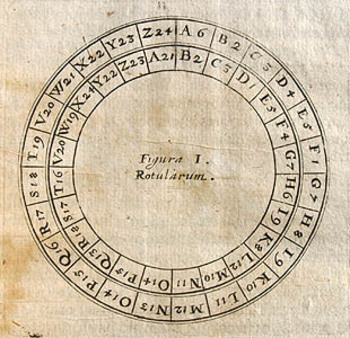 A6 B2 C3 D4 E5 F1 G7 H8 I9 K10 L11 M12 N13 O14 P15 Q16 R17 S18 T19 V20 W21 X22 Y23 Z24
A21 B2 C3 D1 E5 F4 G7 H6 I9 K8 L12 M10 N11 O14 P15 Q13 R18 S17 T16 V20 W19 X24 Y22 Z23
Figura I.
Rotularum.